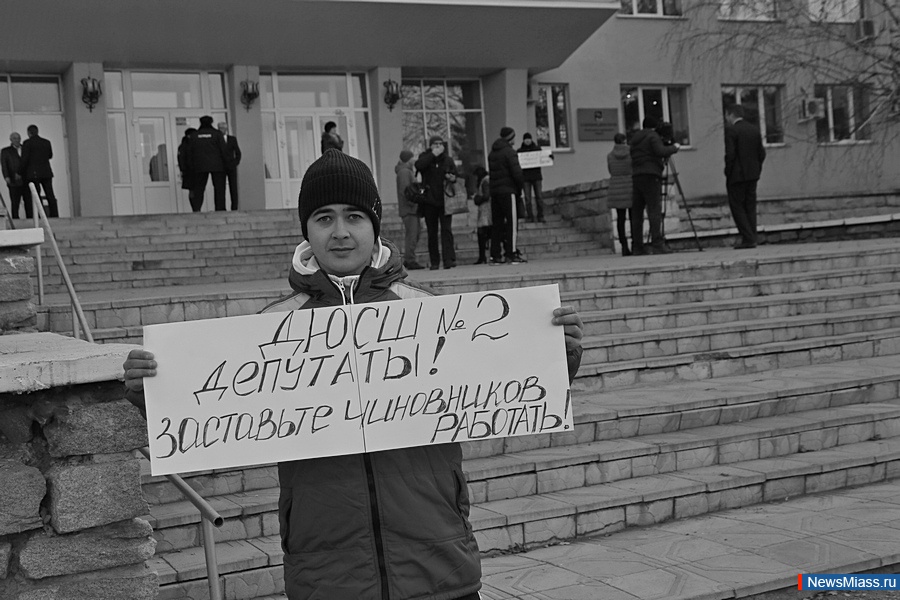 ДЮСШ №2
ДЕПУТАТЫ!
ЗАСТАВЬТЕ ЧИНОВНИКОВ
РАБОТАТЬ!
NewsMiass.ru